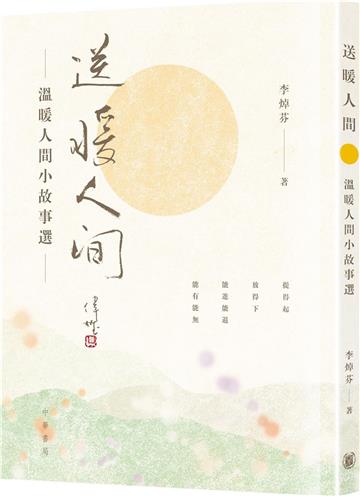 送暖人间
溫暖人間小故事選
李焯芬
著
提得起
放得下
能進能退
能有能無
中華書局
送暖人間
溫暖人間小故事選
李焯芬
著